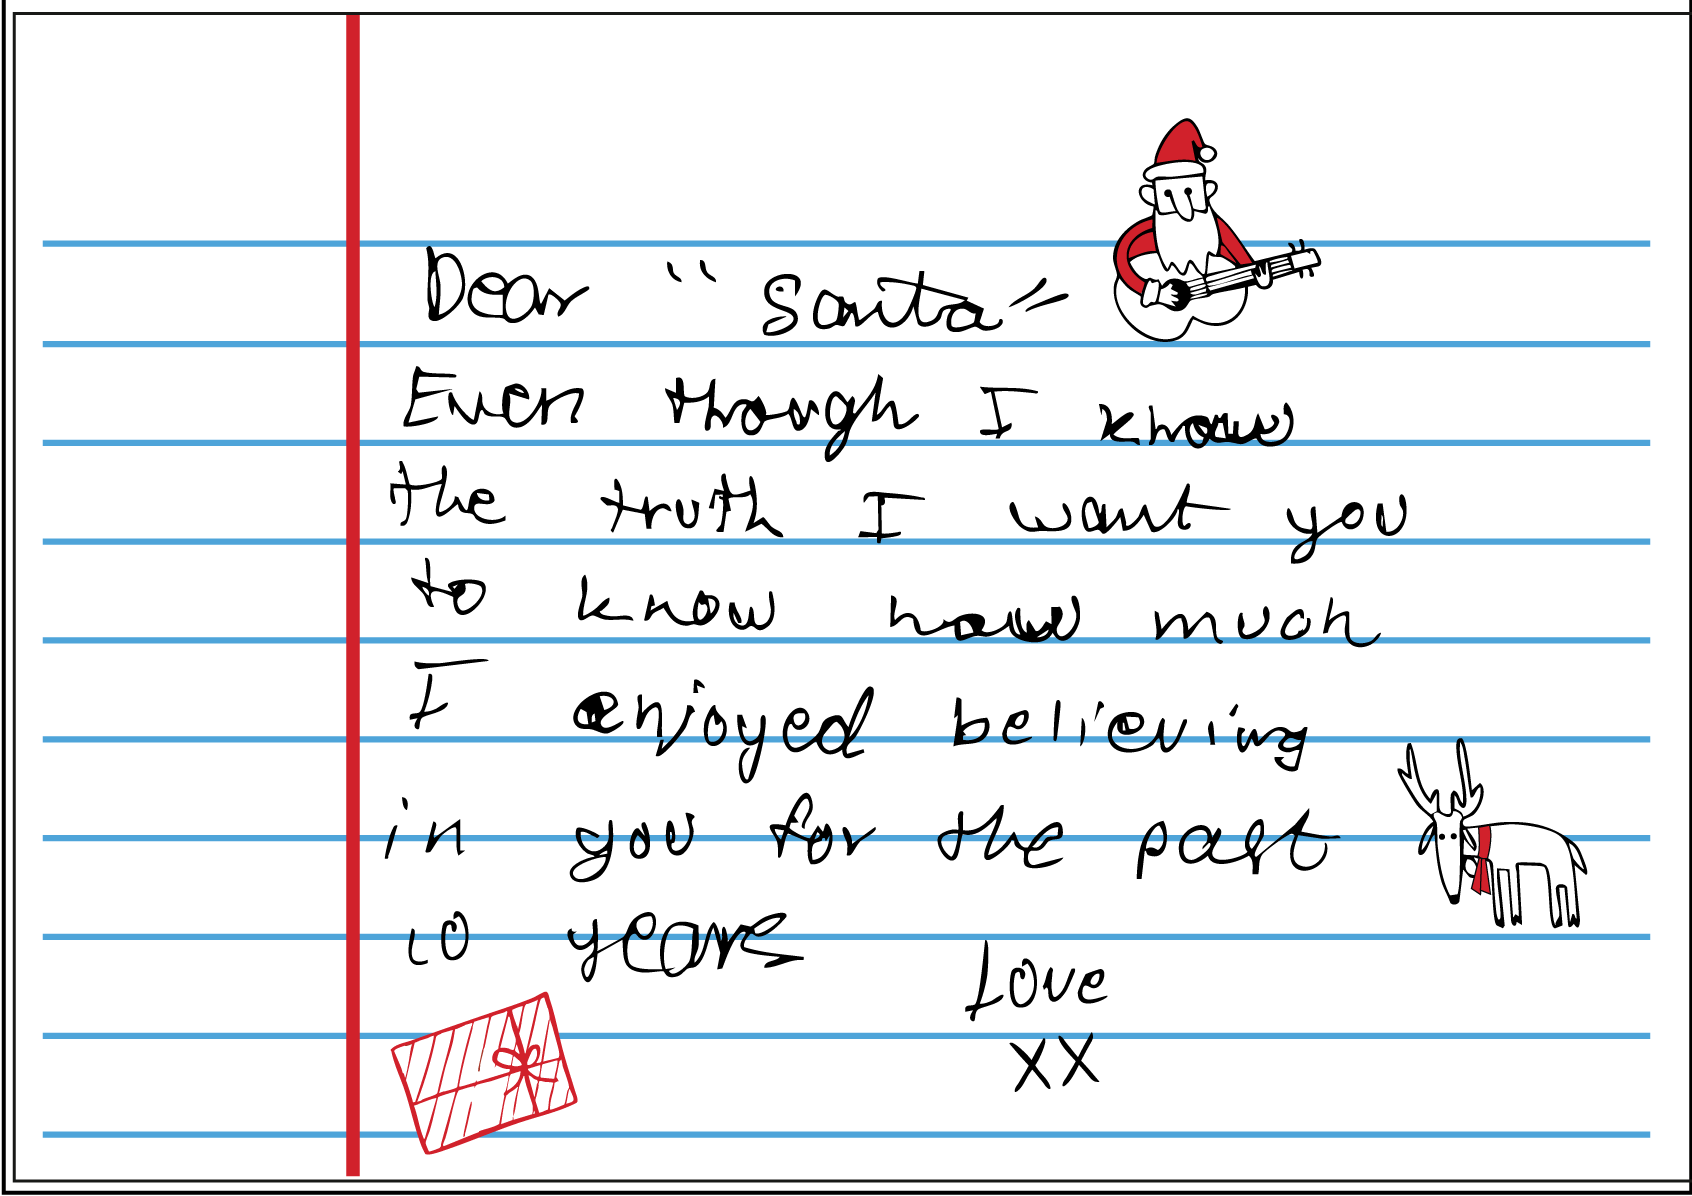 Dear "Santa"
Even though I know
the truth I want you
to know how much
I enjoyed believing
in you for the past
10 years
Love
XX